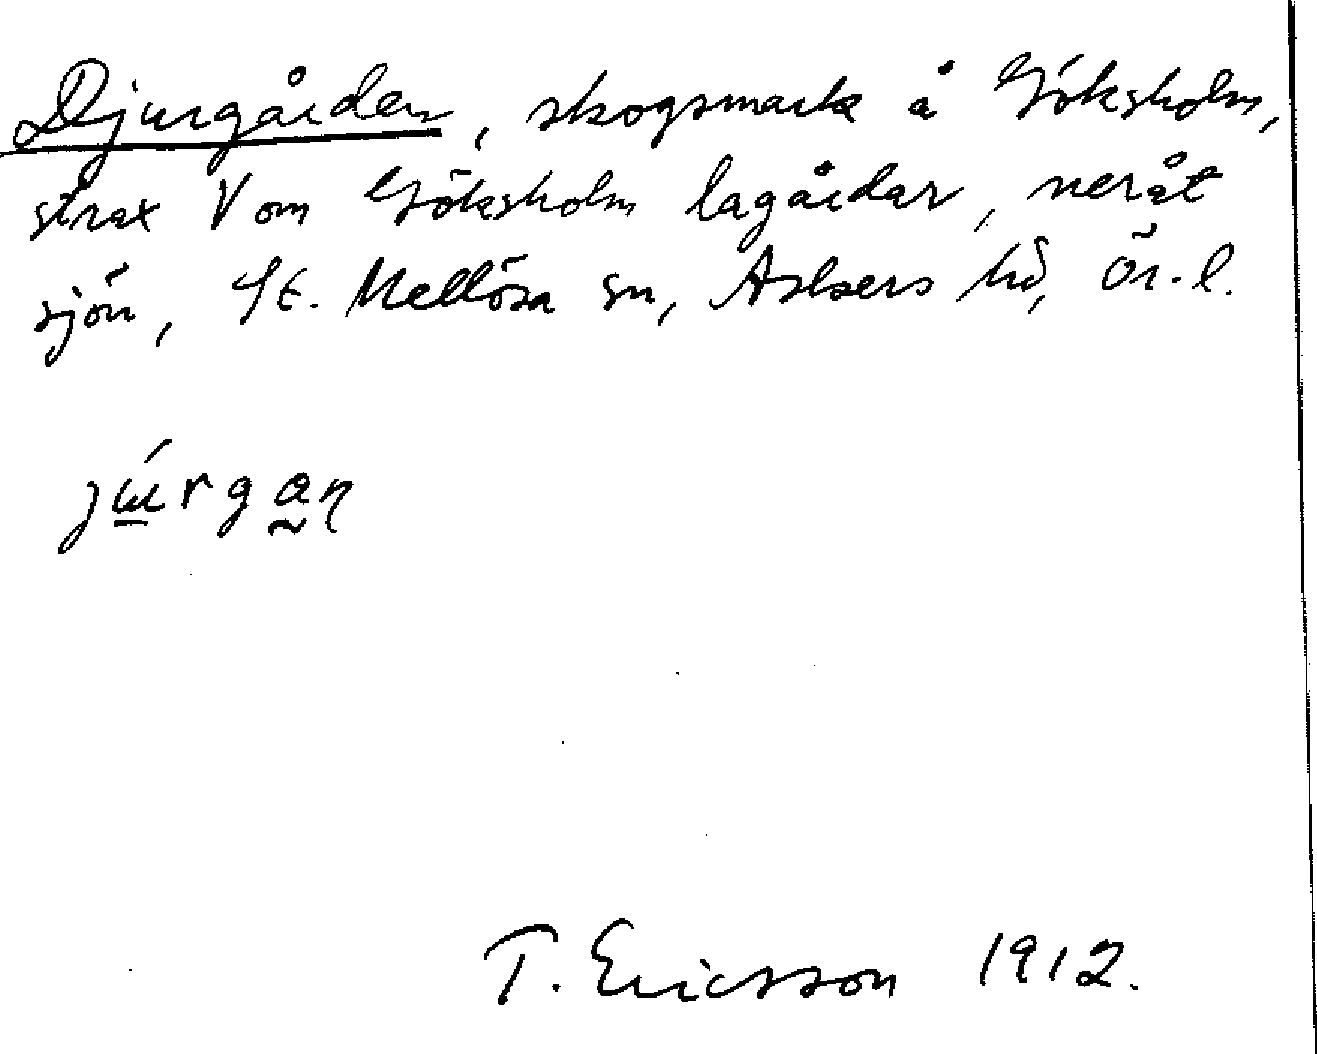 Djurgården, skogsmark å Göksholm,
strax V om Göksholm lagårdar, neråt
sjön, St. Mellösa sn, Askers hd, Ör. l.
T. Ericsson 1912.